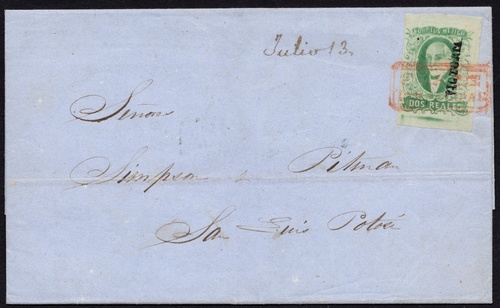 Julio 13.
CORREOS MEJICO
VICTORIA
DOS REALES
Señor
Simpson
Pitman
San Luis Potosí